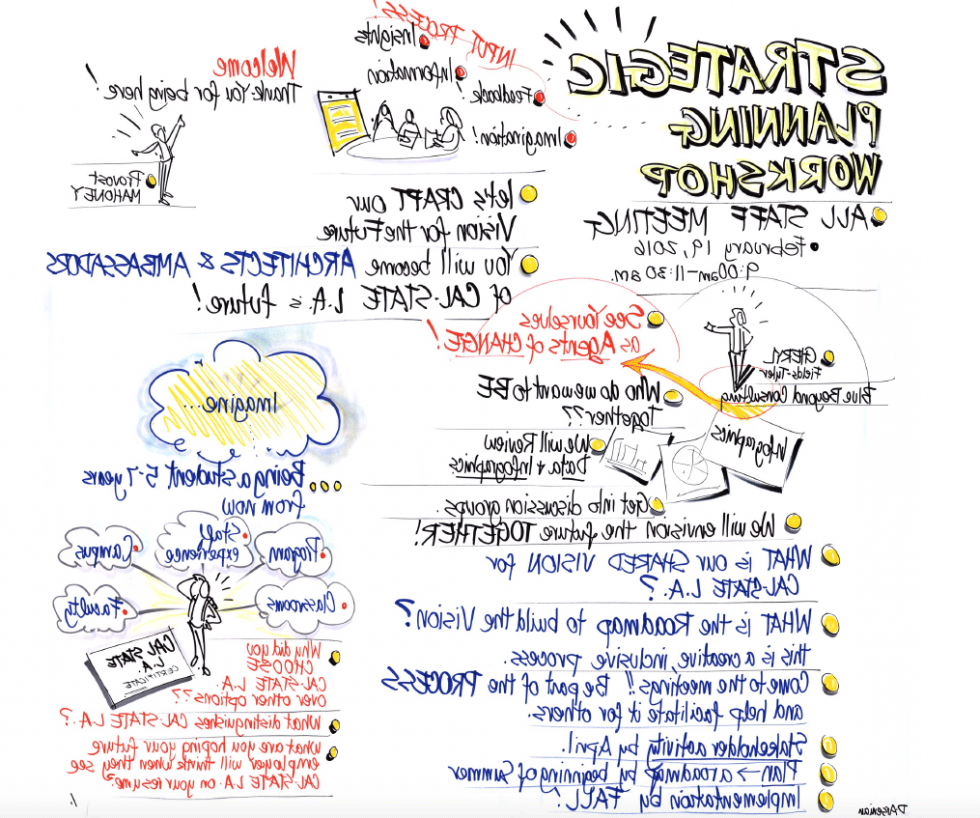 STRATEGIC
PLANNING
WORKSHOP
ALL STAFF MEETING
February 19, 2016
9:00am-11:30am.
CHERYL
Fields-Tyler
Blue Beyond Consulting
INPUT PROCESS!
Insights
Information
Feedback!
Imagination!
Welcome
Thank You for being here!
PROVOST
MAHONEY
let's CRAFT our
Vision for the Future
You will become ARCHITECTS & AMBASSADORS
of CAL·STATE L.A.'s future!
See Yourselves
as Agents of CHANGE!
Who do we want to BE
Together??
We will Review
Data & Infographics
Infographics
Get into discussion groups.
We will envision the future TOGETHER!
WHAT is our SHARED VISION for
CAL·STATE L.A.?
WHAT is the Roadmap to build the Vision?
this is a creative, inclusive process.
Come to the meetings!! Be part of the PROCESS
and help facilitate it for others.
Stakeholder activity by April.
Plan → a roadmap by beginning of Summer
Implementation by FALL!
Imagine...
... Being a student 5-7 years
from now
Program
Staff
experience
Campus
Classrooms
Faculty
CAL STATE
L.A.
CERTIFICATE
Why did you
CHOOSE
CAL·STATE L.A.
over other options??
What distinguishes CAL·STATE L.A.?
What are you hoping your future
employer will think when they see
CAL·STATE L.A. on your resume?